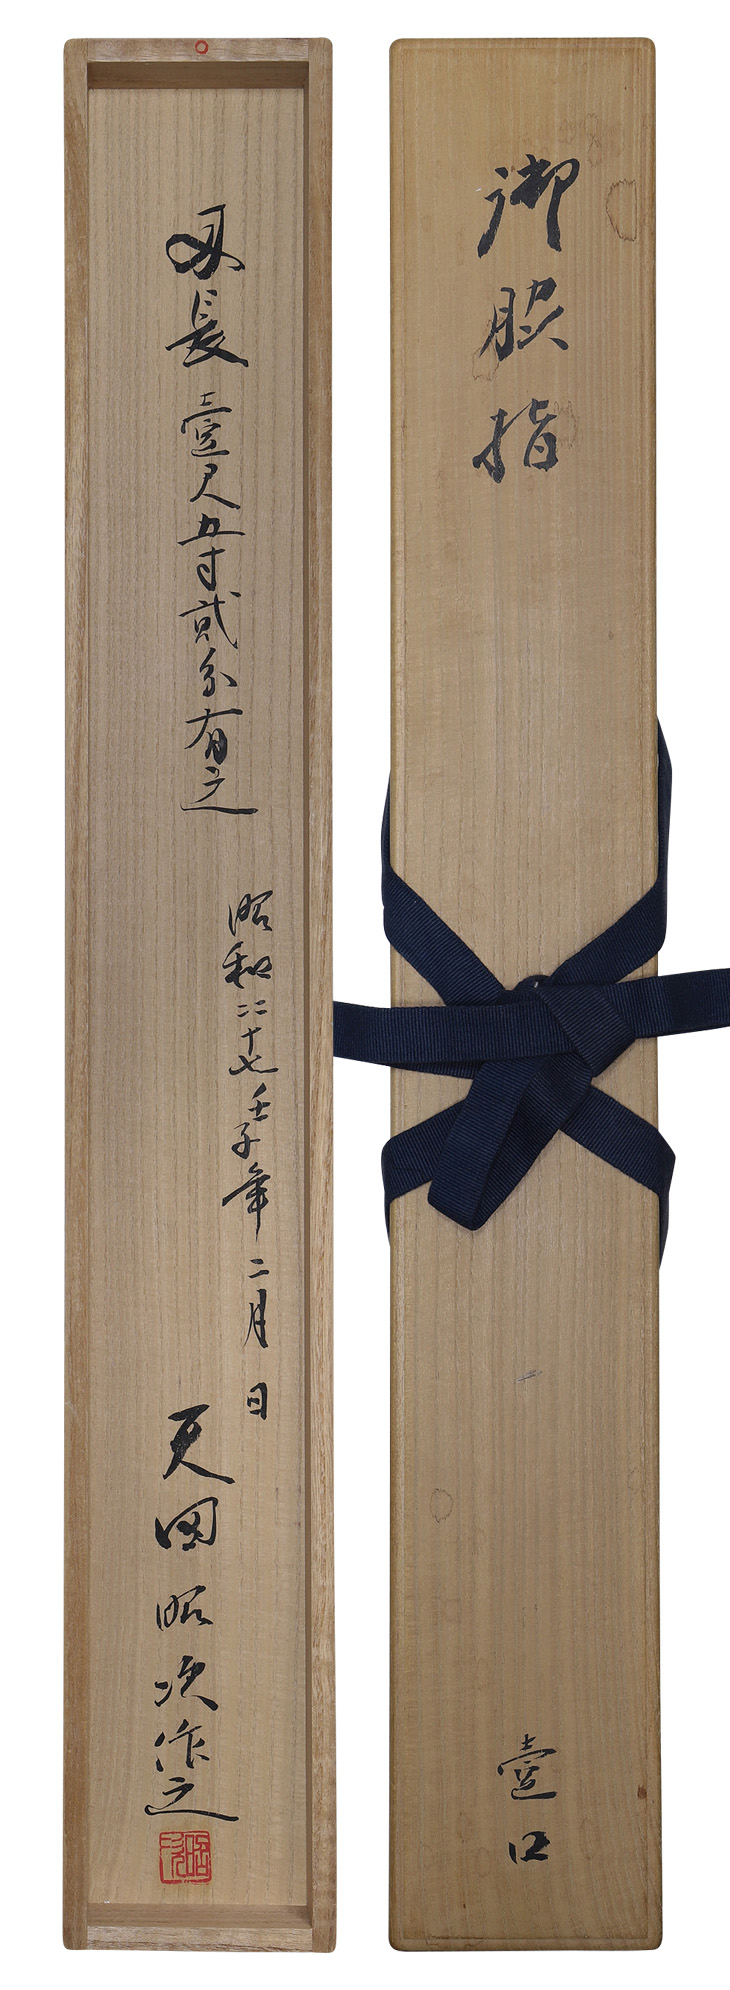 御脇指
壹口
刃長壹尺五寸貳分有之
昭和二二十七壬子年二月日
天田昭次作之
昭次